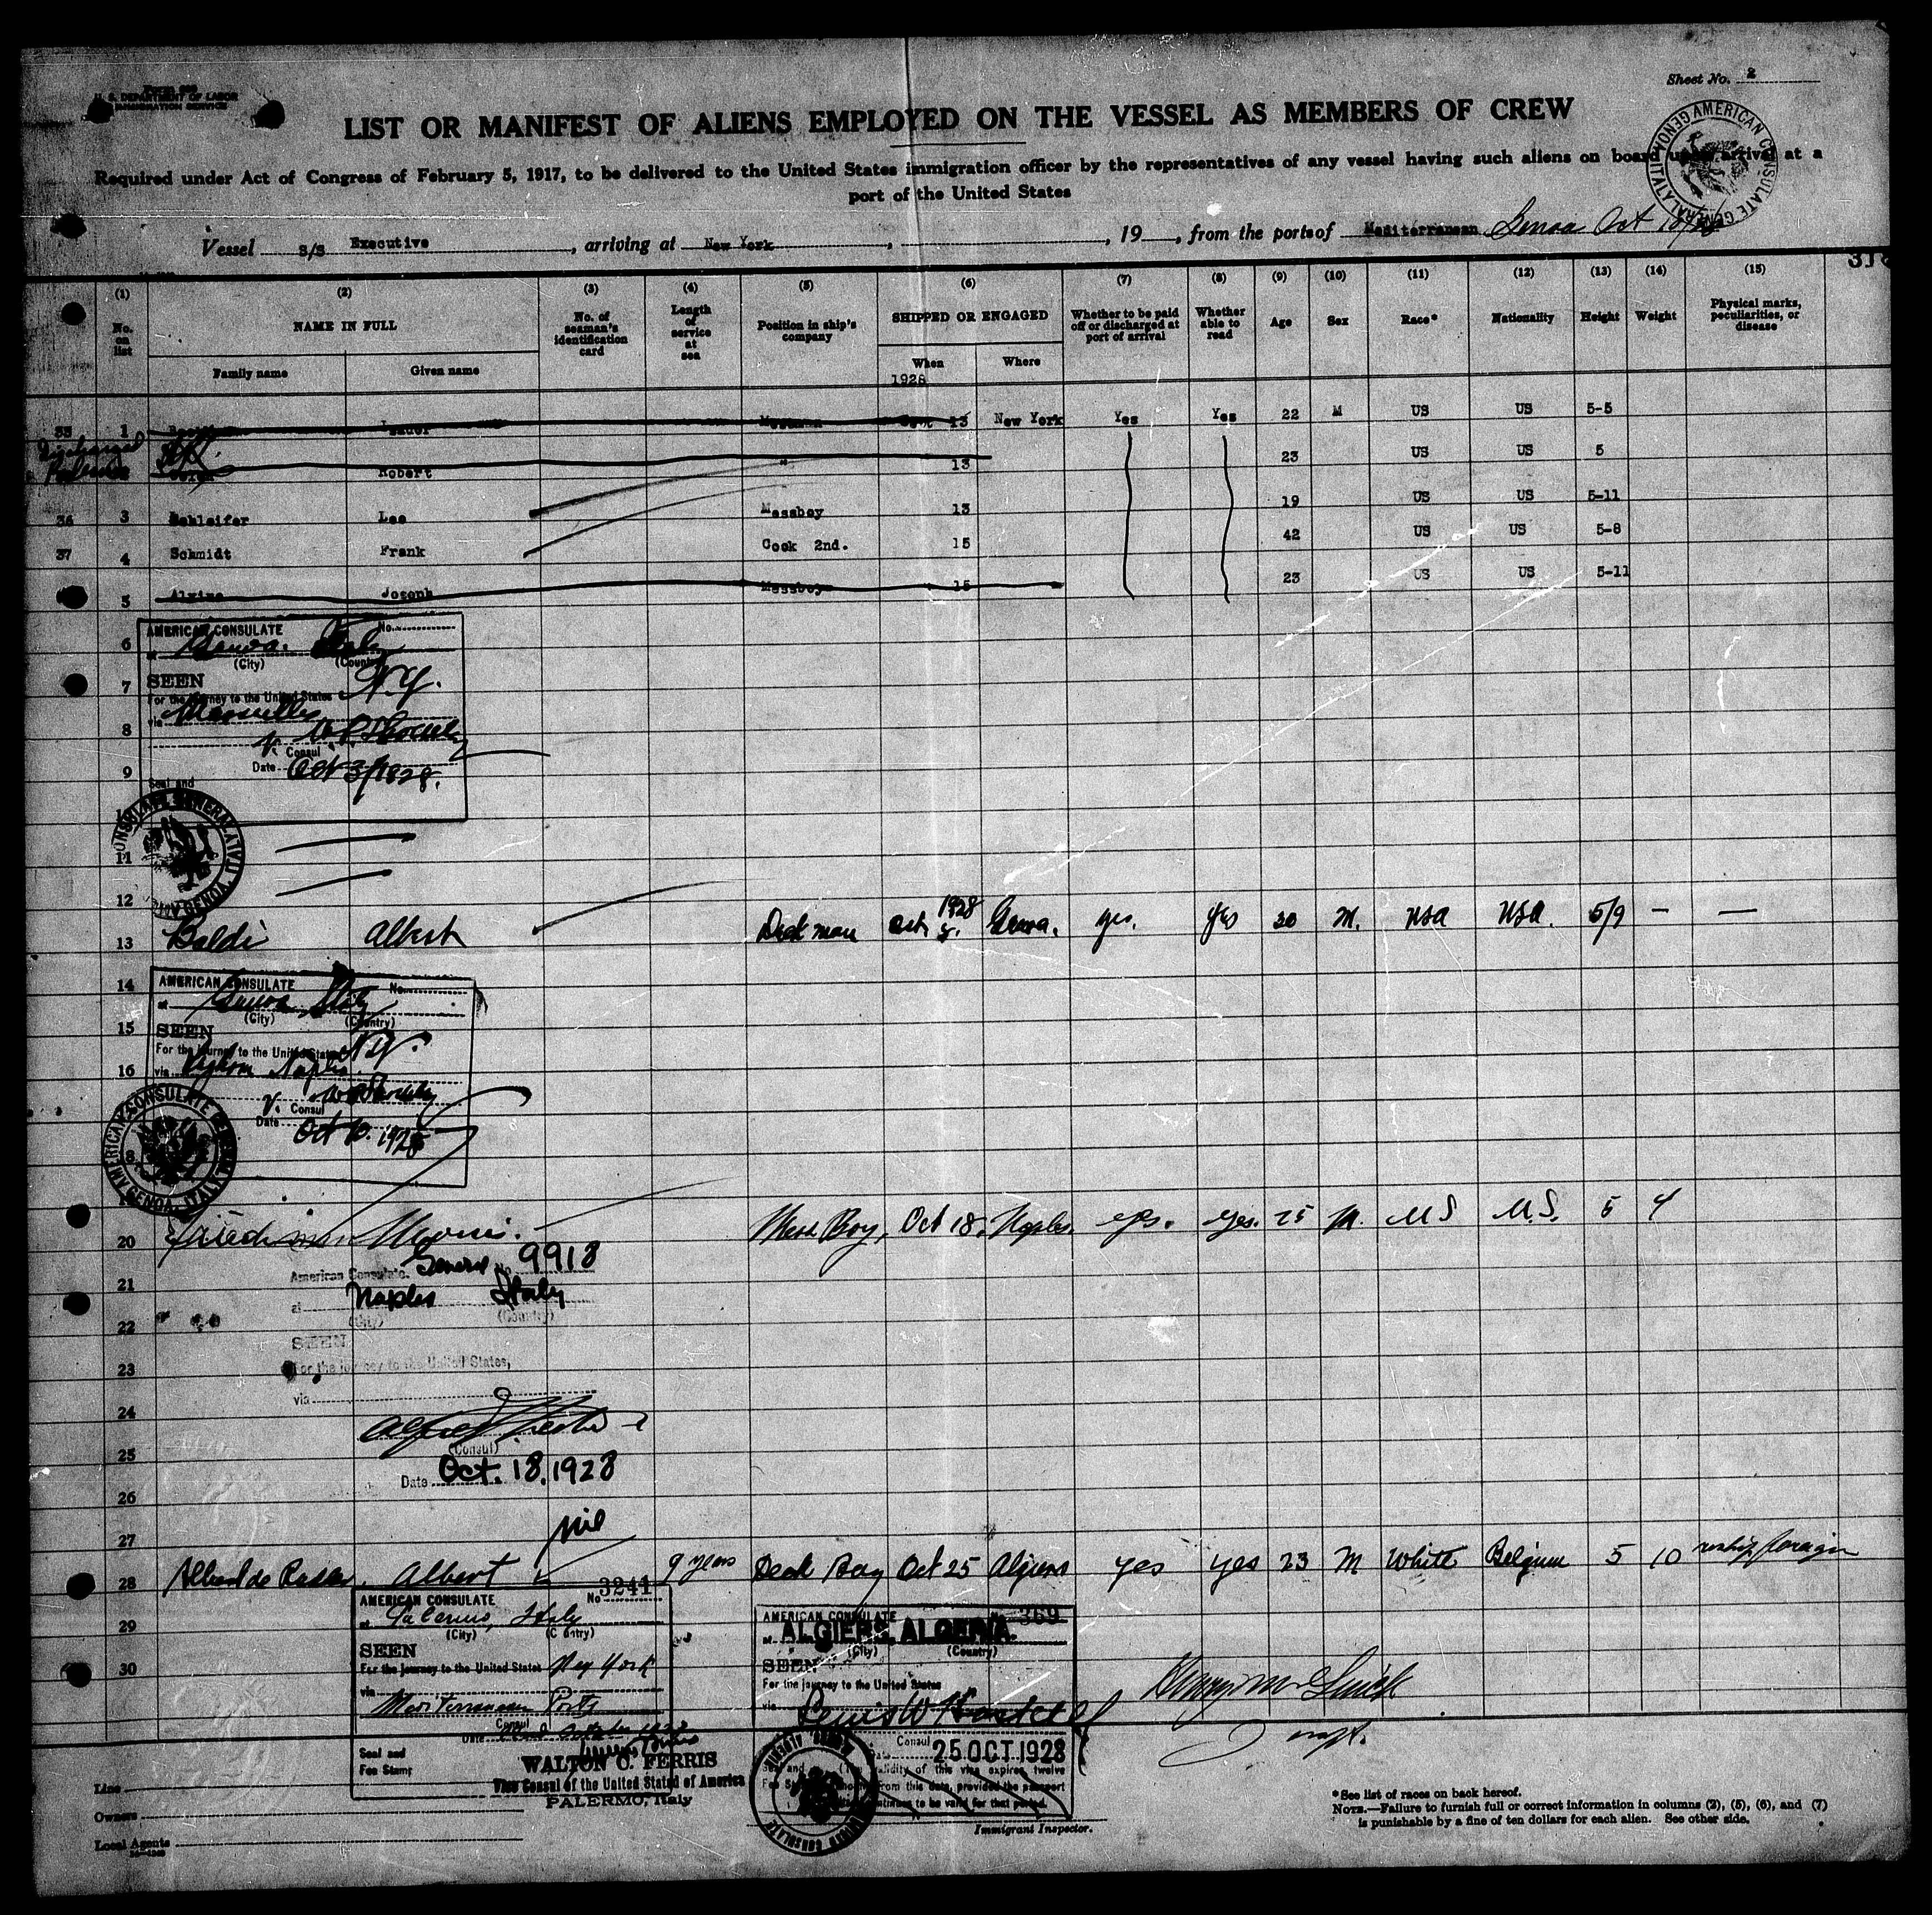 Sheet No. 2
Form 689
U. S. DEPARTMENT OF LABOR
IMMIGRATION SERVICE
LIST OR MANIFEST OF ALIENS EMPLOYED ON THE VESSEL AS MEMBERS OF CREW
Required under Act of Congress of February 5, 1917, to be delivered to the United States immigration officer by the representatives of any vessel having such aliens on board upon arrival at a
port of the United States
AMERICAN CONSULATE GENERAL GENOA ITALY
Vessel S/S Executive, arriving at New York, , 19 , from the ports of Mediterranean Genoa Oct
(1) (2) (3) (4) (5) (6) (7) (8) (9) (10) (11) (12) (13) (14) (15)
No. on list NAME IN FULL No. of seaman's identification card Length of service at sea Position in ship's company SHIPPED OR ENGAGED Whether to be paid off or discharged at port of arrival Whether able to read Age Sex Race* Nationality Height Weight Physical marks, peculiarities, or disease
Family name Given name When Where
1928
1 Messman Sept 13 New York Yes Yes 22 M US US 5-5
Discharged
Robert " 13 23 US US 5
36 3 Schleifer Leo Messboy 13 19 US US 5-11
37 4 Schmidt Frank Cook 2nd. 15 42 US US 5-8
5 Joseph Messboy 15 23 US US 5-11
6
7
8
9
AMERICAN CONSULATE No.
at Genoa. Italy
(City) (Country)
SEEN
For the journey to the United States N.Y.
via Marseilles
V. Consul
Date Oct 3/1928.
Seal and
11
12
13 Baldi Albert Deck man Oct 1928 Genoa. yes. yes 20 M. USA USA. 5/9 — —
14
15
16
AMERICAN CONSULATE No.
at Genoa Italy
(City) (Country)
SEEN
For the journey to the United States N.Y.
via Naples
V. Consul
Date Oct 10. 1928
AMERICAN CONSULATE GENERAL GENOA, ITALY
20 Friedman Morris. Mess Boy, Oct 18, Naples. yes. yes. 25 M. US U.S. 5 4
21
22
23
24
25
26
27
American Consulate General No. 9918
at Naples Italy
(City) (Country)
SEEN
For the journey to the United States,
via
(Consul)
Date Oct. 18, 1928
nil
28 Albert 9 years Deck Boy Oct 25 Algiers yes yes 23 M White Belgium 5 10
29
30
AMERICAN CONSULATE No 3241
at Palermo, Italy
(City) (Country)
SEEN
For the journey to the United States New York
via
Mediterranean Ports
Consul
Date
Seal and
Fee Stamp
WALTON C. FERRIS
Vice Consul of the United States of America
PALERMO, Italy
AMERICAN CONSULATE 369
at ALGIERS, ALGERIA.
(City) (Country)
SEEN
For the journey to the United States
via
Consul
Date 25 OCT 1928
(The validity of this visa expires twelve
months from this date, provided the passport
continues to be valid for that period.
Immigrant Inspector.
Line
Owners
Local Agents
*See list of races on back hereof.
NOTE.—Failure to furnish full or correct information in columns (2), (5), (6), and (7)
is punishable by a fine of ten dollars for each alien. See other side.